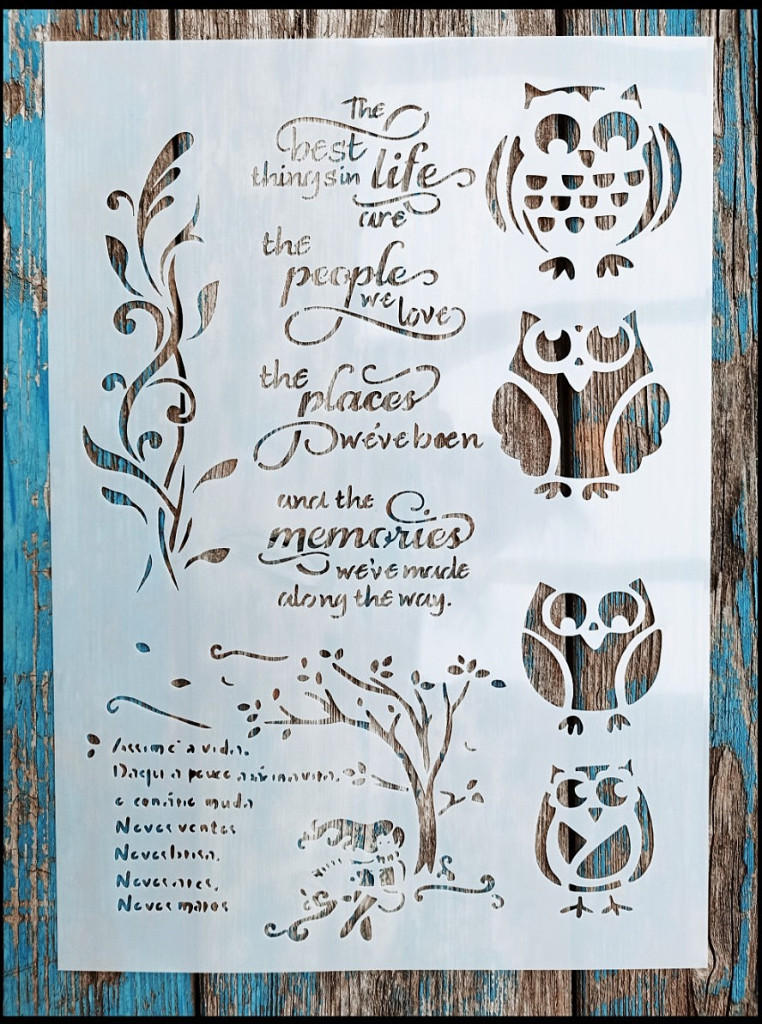 The
best
things in life
are
the
people
we love
the
places
we've been
and the
memories
we've made
along the way.
Assim é a vida.
Daqui a pouco a
e cenário muda
Novos ventos
Novos brisa.
Novos ares,
Novos mares